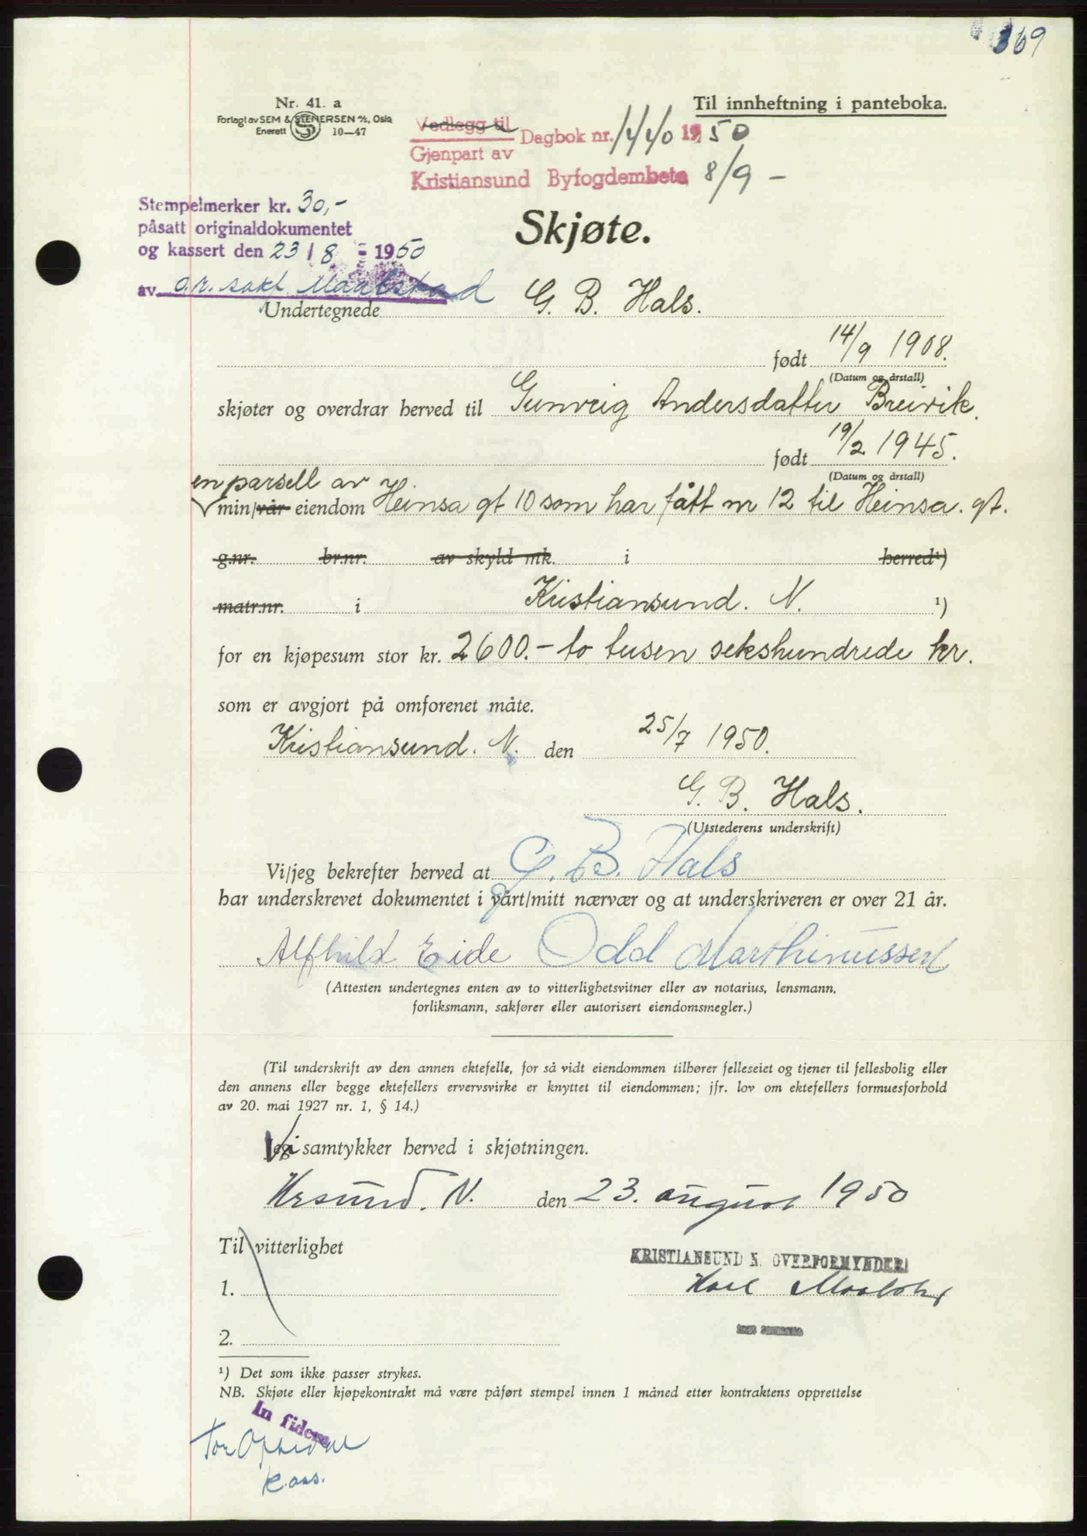 369
Nr. 41. a
Forlagt av SEM & STENERSEN A/S, Oslo
Enerett S 10—47
Til innheftning i panteboka.
Vedlegg til
Gjenpart av Dagbok nr. 1440 1950
Kristiansund Byfogdembete 8/9 -
Stempelmerker kr. 30,-
påsatt originaldokumentet
og kassert den 23/8 - 1950
av o.r. sakf.
Skjøte.
Undertegnede G. B. Hals.
født 14/9 1908.
(Datum og årstall)
skjøter og overdrar herved til Gunveig Andersdatter Breivik.
født 19/2 1945.
(Datum og årstall)
en parsell av
min/vår eiendom Heinsa gt 10 som har fått nr 12 til Heinsa. gt.
g.nr. br.nr. av skyld mk. i herred¹)
matr.nr. i Kristiansund. N. ¹)
for en kjøpesum stor kr. 2600.- to tusen sekshundrede kr.
som er avgjort på omforenet måte.
Kristiansund. N. den 25/7 1950.
G. B. Hals.
(Utstederens underskrift)
Vi/jeg bekrefter herved at G. B. Hals
har underskrevet dokumentet i vårt/mitt nærvær og at underskriveren er over 21 år.
Alfhild Eide Odd Marthinussen
(Attesten undertegnes enten av to vitterlighetsvitner eller av notarius, lensmann,
forliksmann, sakfører eller autorisert eiendomsmegler.)
(Til underskrift av den annen ektefelle, for så vidt eiendommen tilhører felleseiet og tjener til fellesbolig eller
den annens eller begge ektefellers ervervsvirke er knyttet til eiendommen; jfr. lov om ektefellers formuesforhold
av 20. mai 1927 nr. 1, § 14.)
Vi samtykker herved i skjøtningen.
Krsund. N. den 23. august 1950
Til vitterlighet
KRISTIANSUND N. OVERFORMYNDERI
1.
Karl
2.
¹) Det som ikke passer strykes.
NB. Skjøte eller kjøpekontrakt må være påført stempel innen 1 måned etter kontraktens opprettelse
In fidem